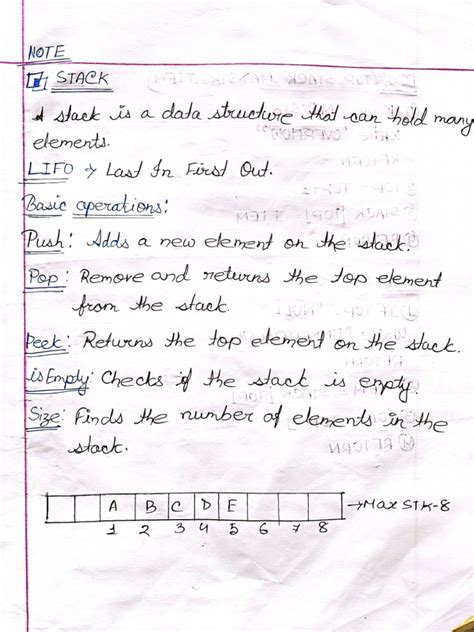 NOTE
STACK
A stack is a data structure that can hold many
elements.
LIFO → Last In First Out.
Basic operations:
Push: Adds a new element on the stack.
Pop: Remove and returns the top element
from the stack.
Peek: Returns the top element on the stack.
isEmpty: Checks if the stack is empty.
Size: Finds the number of elements in the
stack.
A B C D E → Max STK-8
1 2 3 4 5 6 7 8